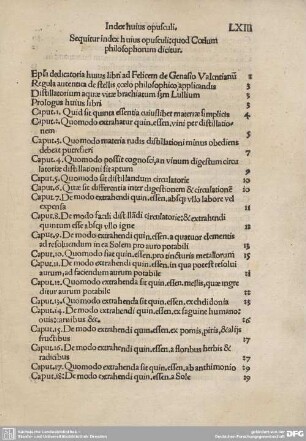 Index huius opusculi. LXIII
Sequitur index huius opusculi; quod Cœlum
philosophorum dicitur.
Epła dedicatoria huius libri ad Felicem de Genasio Valentianū 2
Regula autentica de stellis cœlo philosophico applicandis 3
Distillatorium aquæ vitæ brachiatum sm Lullium 3
Prologus huius libri 3
Caput.1. Quid sit quinta essentia cuiuslibet materiæ simplicis 4
Caput.2. Quomodo extrahatur quin.essen.vini per distillatio-
nem 5
Caput.3. Quomodo materia rudis distillationi minus obediens
debeat putrefieri 7
Caput.4. Quomodo possit cognosci, an vinum digestum circu
latorię distillationi sit aptum 9
Caput.5. Quomodo sit distillandum circulatorie 10
Caput.6. Quæ sit differentia inter digestionem & circulationē
Caput.7. De modo extrahendi quin.essen.absq; vllo labore vel
expensa 11
Caput.8. De modo facili distillādi circulatorie; & extrahendi
quintum esse absq; vllo igne 12
Caput.9. De modo extrahendi quin.essen.a quatuor elementis
ad resoluendum in ea Solem pro auro potabili 13
Caput.10. Quomodo fiat quin.essen.pro tincturis metallorum 15
Caput.11. De modo extrahendi quin.essen.in qua potest resolui
aurum, ad faciendum aurum potabile
Caput.12. Quomodo extrahenda sit quin.essen.mellis, quæ ingre
ditur aurum potabile
Caput.13. Quomodo extrahenda sit quin.essen.ex chelidonia
Caput.14. De modo extrahendi quin.essen.ex saguine humano:
ouis: carnibus &c.
Caput.15. De modo extrahendi quin.essen.ex pomis, piris, & alijs
fructibus 17
Caput.16. De modo extrahendi quin.essen.a floribus herbis &
radicibus 17
Caput.17. Quomodo extrahenda sit quin.essen.ab anthimonio
Caput.18. De modo extrahendi quin.essen.a Sole